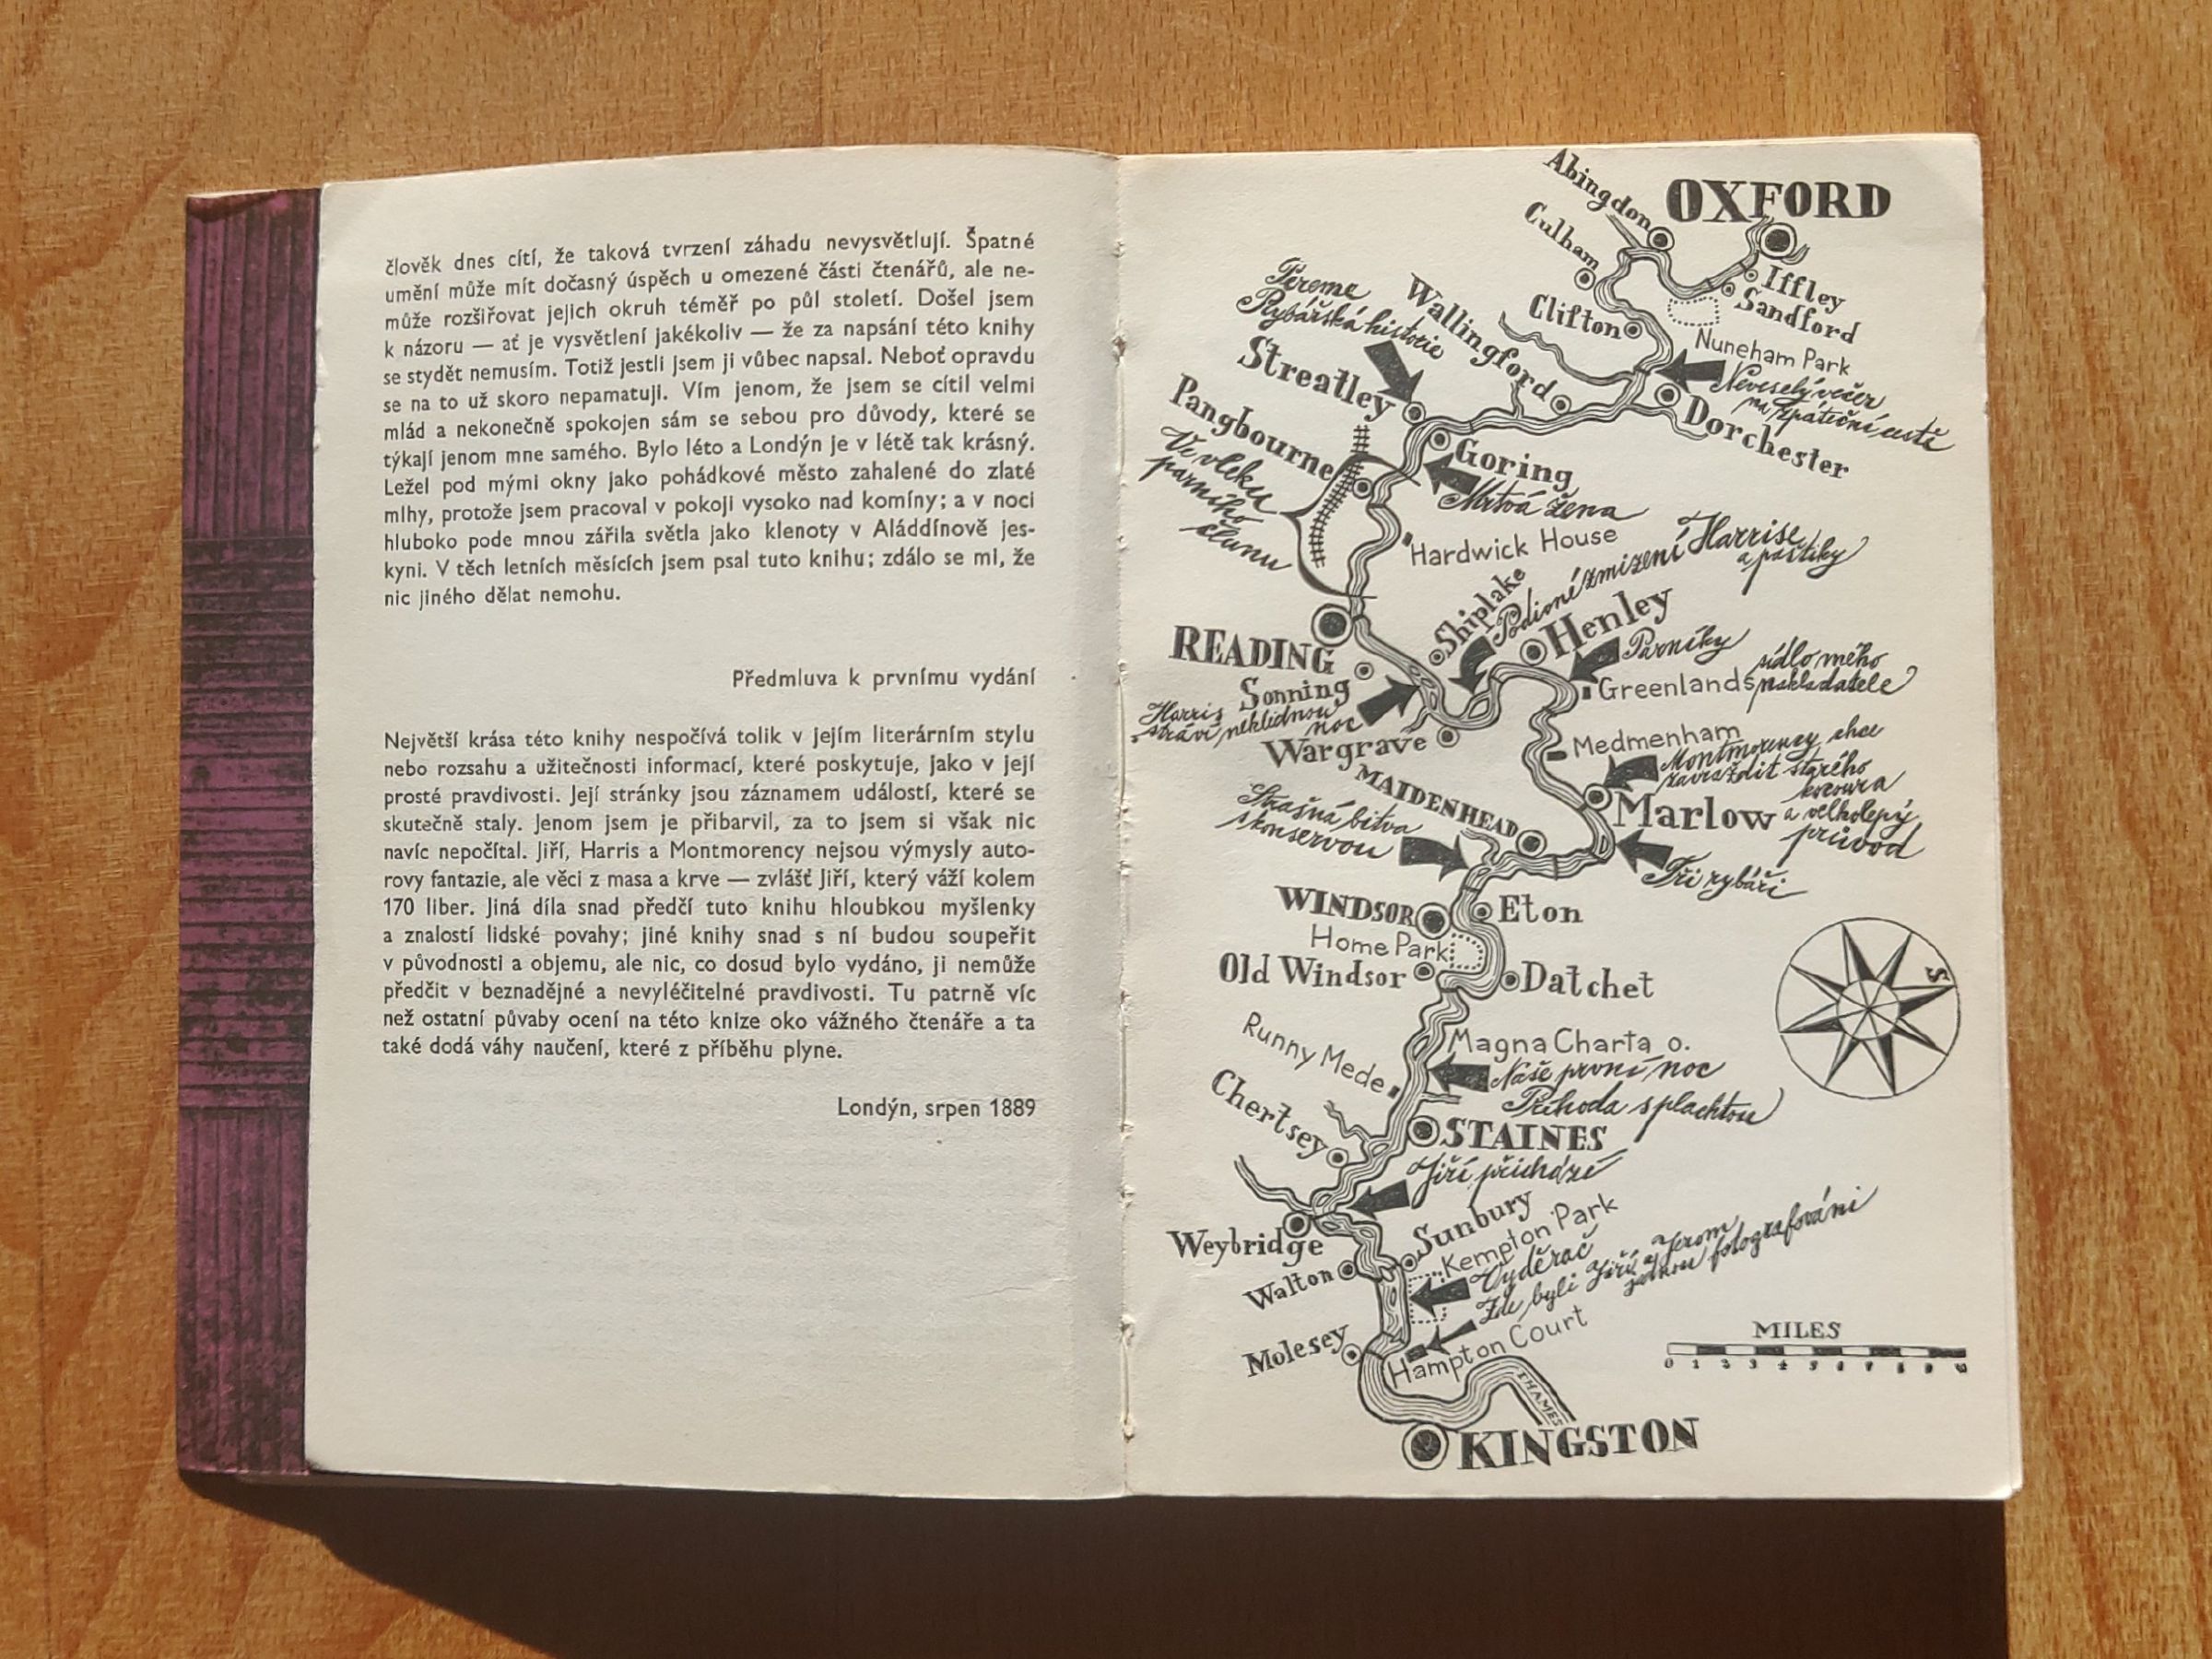 člověk dnes cítí, že taková tvrzení záhadu nevysvětlují. Špatné
umění může mít dočasný úspěch u omezené části čtenářů, ale ne-
může rozšiřovat jejich okruh téměř po půl století. Došel jsem
k názoru — ať je vysvětlení jakékoliv — že za napsání této knihy
se stydět nemusím. Totiž jestli jsem ji vůbec napsal. Neboť opravdu
se na to už skoro nepamatuji. Vím jenom, že jsem se cítil velmi
mlád a nekonečně spokojen sám se sebou pro důvody, které se
týkají jenom mne samého. Bylo léto a Londýn je v létě tak krásný.
Ležel pod mými okny jako pohádkové město zahalené do zlaté
mlhy, protože jsem pracoval v pokoji vysoko nad komíny; a v noci
hluboko pode mnou zářila světla jako klenoty v Aláddínově jes-
kyni. V těch letních měsících jsem psal tuto knihu; zdálo se mi, že
nic jiného dělat nemohu.
Předmluva k prvnímu vydání
Největší krása této knihy nespočívá tolik v jejím literárním stylu
nebo rozsahu a užitečnosti informací, které poskytuje, jako v její
prosté pravdivosti. Její stránky jsou záznamem událostí, které se
skutečně staly. Jenom jsem je přibarvil, za to jsem si však nic
navíc nepočítal. Jiří, Harris a Montmorency nejsou výmysly auto-
rovy fantazie, ale věci z masa a krve — zvlášť Jiří, který váží kolem
170 liber. Jiná díla snad předčí tuto knihu hloubkou myšlenky
a znalostí lidské povahy; jiné knihy snad s ní budou soupeřit
v původnosti a objemu, ale nic, co dosud bylo vydáno, ji nemůže
předčit v beznadějné a nevyléčitelné pravdivosti. Tu patrně víc
než ostatní půvaby ocení na této knize oko vážného čtenáře a ta
také dodá váhy naučení, které z příběhu plyne.
Londýn, srpen 1889
Abingdon
OXFORD
Culham
Iffley
Sandford
Clifton
Nuneham Park
Neveselý večer
na zpáteční cestě
Pereme
Rybářská historie
Wallingford
Streatley
Dorchester
Pangbourne
Goring
Ve vleku
parního
člunu
Mrtvá žena
Hardwick House
Podivné zmizení Harrise
a paštiky
Shiplake
Henley
Parníky
READING
Sonning
Greenlands
sídlo mého
nakladatele
Harris
stráví neklidnou
noc
Wargrave
Medmenham
Montmorency chce
zavraždit starého
kocoura
a velkolepý
průvod
MAIDENHEAD
Marlow
Strašná bitva
s konservou
Tři rybáři
WINDSOR
Eton
Home Park
Old Windsor
Datchet
S
Runny Mede
Magna Charta o.
Naše první noc
Příhoda s plachtou
Chertsey
STAINES
Jiří přichází
Weybridge
Sunbury
Kempton Park
Walton
Vyděrač
Zde byli Jiří a Jerom
jednou fotografováni
Molesey
Hampton Court
THAMES
KINGSTON
MILES
0 1 2 3 4 5 6 7 8 9 10